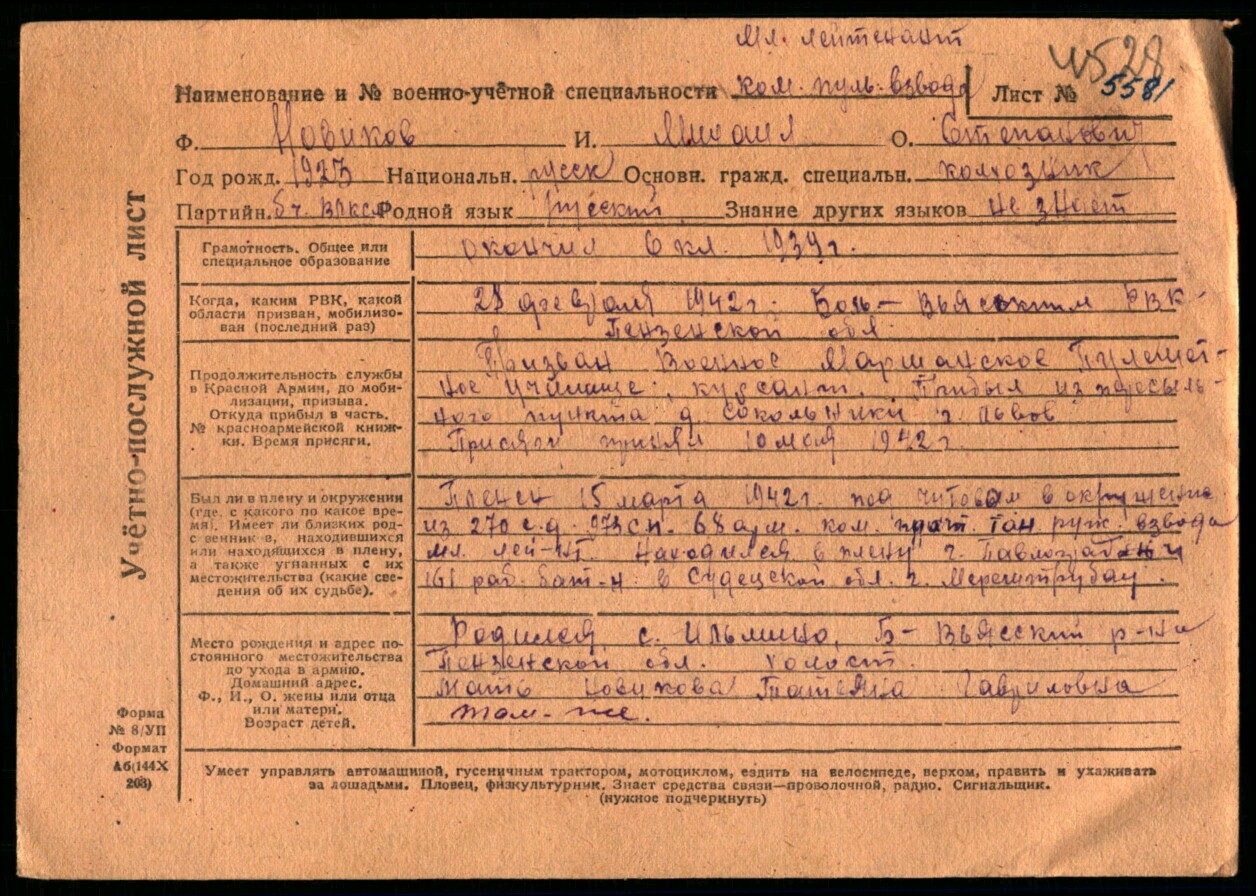 Мл. лейтенант
Наименование и № военно-учётной специальности ком. пуль. взвода Лист № 5581
Ф. Новиков И. Михаил О. Степанович
Год рожд. 1923 Национальн. русск Основн. гражд. специальн. колхозник
Партийн. бч. ВЛКСМ Родной язык русский Знание других языков не знает
Учётно-послужной лист
Грамотность. Общее или
специальное образование
окончил 6 кл. 1939г.
Когда, каким РВК, какой
области призван, мобилизо-
ван (последний раз)
февраля 1942г. Боль-Вьясским РВК
Пензенской обл
Продолжительность службы
в Красной Армии, до моби-
лизации, призыва.
Откуда прибыл в часть.
№ красноармейской книж-
ки. Время присяги.
Призван Военное Маршанское Пулемет-
ное училище, курсант. Прибыл из пересыль-
ного пункта д. Сокольники г. Львов
Присяги принял 10 мая 1942г.
Был ли в плену и окружении
(где, с какого по какое вре-
мя). Имеет ли близких род-
с венник в, находившихся
или находящихся в плену,
а также угнанных с их
местожительства (какие све-
дения об их судьбе).
Пленен 15 марта 1942г. под в окружение
из 270 с.д. 973 сп. ком. танк. руж. взвода
мл. лей-нт. Находился в плену г.
161 раб. бат-н в Судецской обл. г.
Место рождения и адрес по-
стоянного местожительства
до ухода в армию.
Домашний адрес.
Ф., И., О. жены или отца
или матери.
Возраст детей.
Родился с. Ильмино, Б-Вьясский р-н
Пензенской обл. холост.
Мать Новикова Татеяна Гавриловна
там-же.
Форма
№ 8/УП
Формат
А6(144Х
203)
Умеет управлять автомашиной, гусеничным трактором, мотоциклом, ездить на велосипеде, верхом, править и ухаживать
за лошадьми. Пловец, физкультурник. Знает средства связи—проволочной, радио. Сигнальщик.
(нужное подчеркнуть)